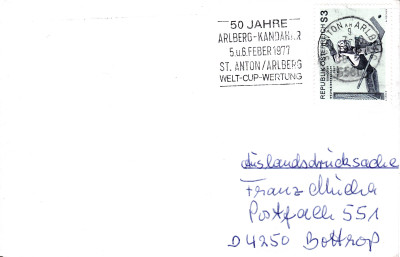 50 JAHRE
ARLBERG-KANDAHAR
5.u.6.FEBER 1977
ST. ANTON/ARLBERG
WELT-CUP-WERTUNG
REPUBLIK ÖSTERREICH S3
ANTON AM ARLBERG
Auslandsdrucksache
Franz Mucha
Postfach 551
D 4250 Bottrop